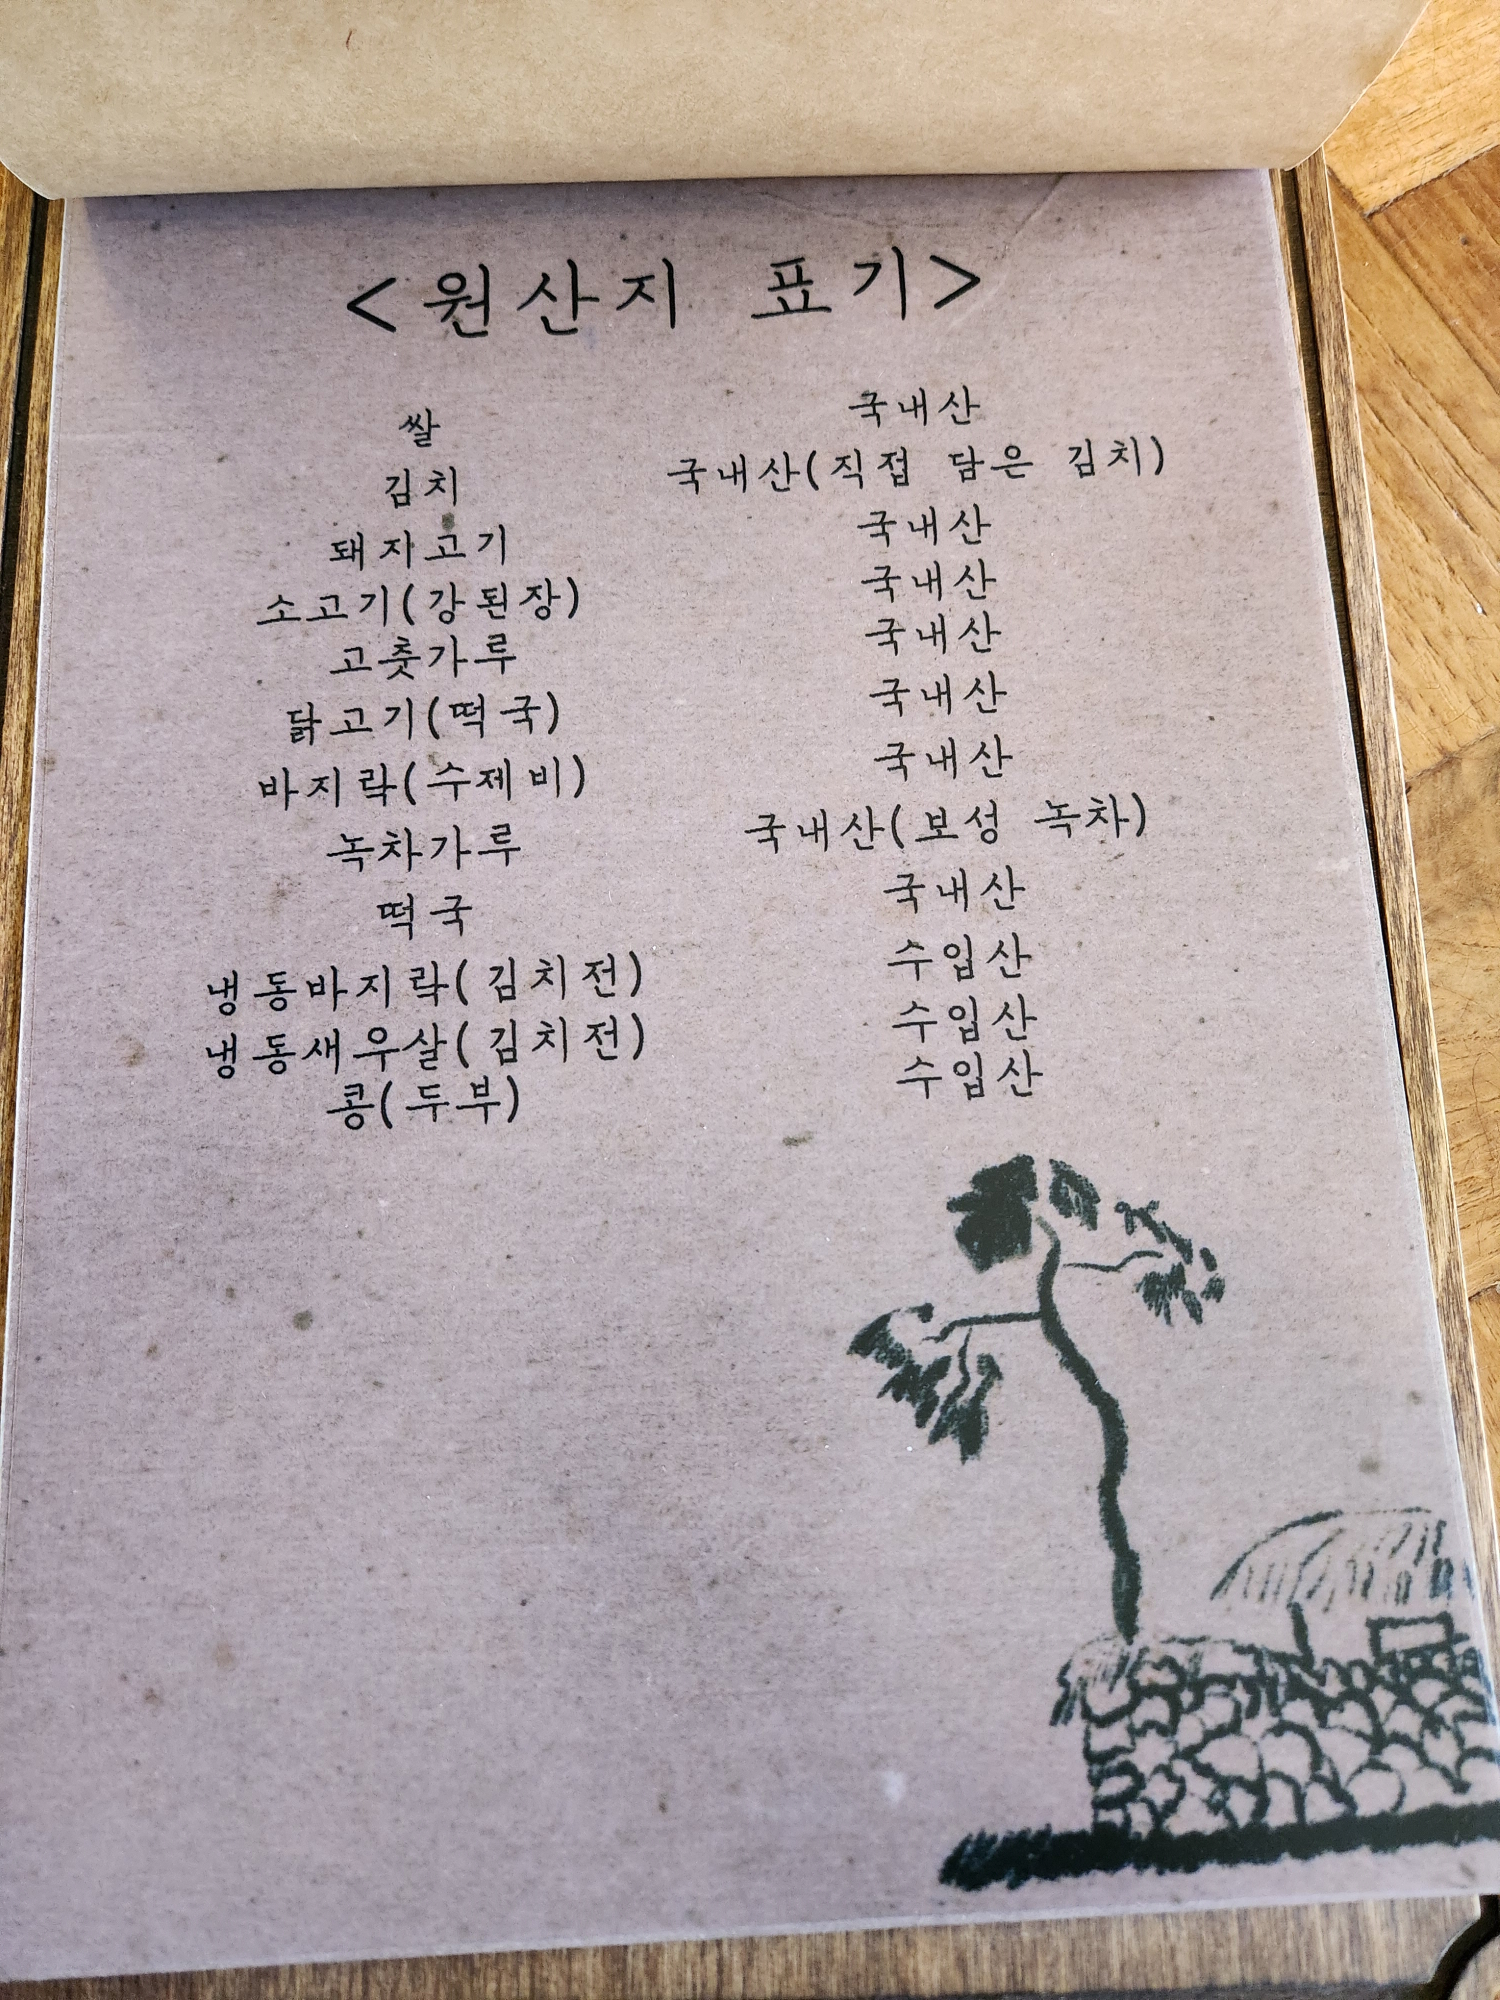 <원산지 표기>
쌀 국내산
김치 국내산(직접 담은 김치)
돼지고기 국내산
소고기(강된장) 국내산
고춧가루 국내산
닭고기(떡국) 국내산
바지락(수제비) 국내산
녹차가루 국내산(보성 녹차)
떡국 국내산
냉동바지락(김치전) 수입산
냉동새우살(김치전) 수입산
콩(두부) 수입산